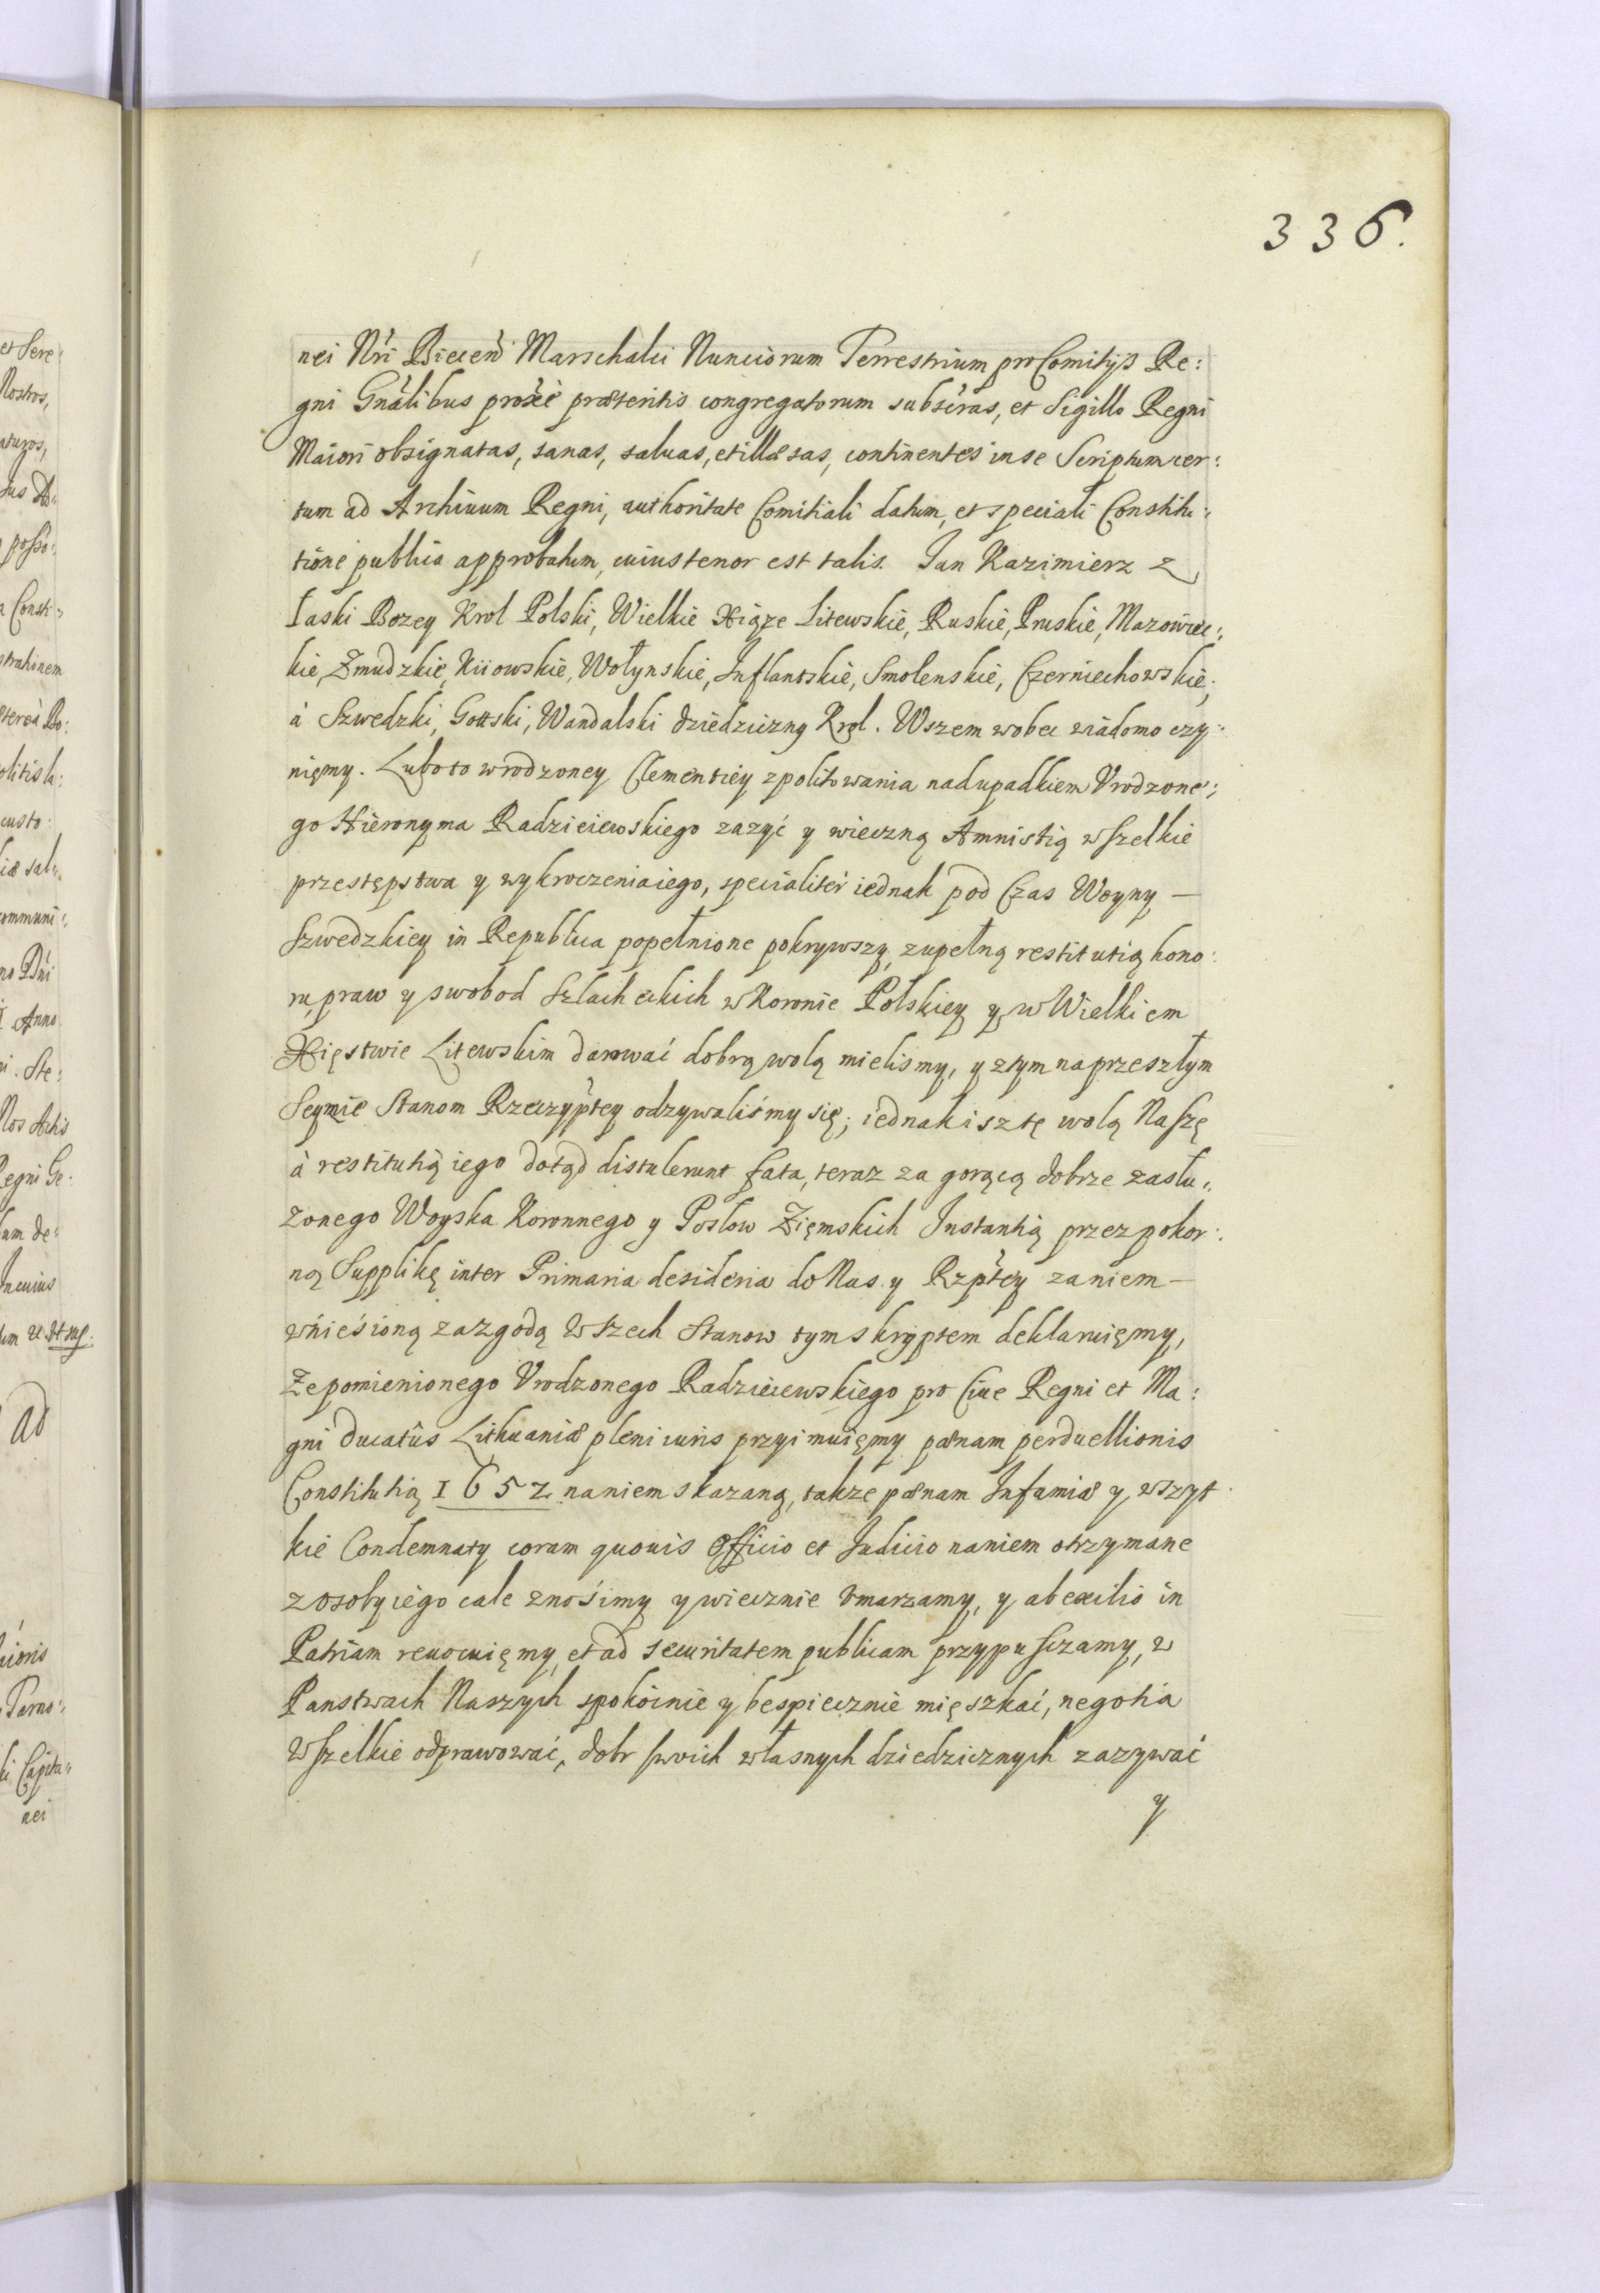 336.
nei Nri Biecen Marschalci Nunciorum Terrestrium pro Comitijs Re:
gni Gnalibus proxie præteritis congregatorum subscras, et Sigillo Regni
Maiori obsignatas, sanas, saluas, et illæsas, continentes in se Scriptum cer:
tum ad Archiuum Regni, authoritate Comitiali datum, et speciali Constitu:
tione publica approbatum, cuius tenor est talis. Jan Kazimierz z
Łaski Bozey Krol Polski, Wielkie Xiąze Litewskie, Ruskie, Pruskie, Mazowiec:
kie, Zmudzkie, Kiiowskie, Wołynskie, Inflantskie, Smolenskie, Czerniechowskie,
á Szwedzki, Gottski, Wandalski dziedziczny Krol. Wszem wobec wiadomo czy:
nięmy. Lubo to wrodzoney Clementiey z politowania nad upadkiem Vrodzone:
go Hieronyma Radzieiewskiego zazyć y wieczną Amnistią wszelkie
przestępstwa y wykroczenia iego, specialiter iednak pod Czas Woyny –
Szwedzkiey in Republica popełnione pokrywszy, zupełną restitutią hono:
ru, praw y swobod Szlacheckich w Koronie Polskiey y w Wielkiem
Xięstwie Litewskim darować dobrą wolą mielismy, y z tym na przeszłym
Seymie Stanom Rzeczyptey odzywaliśmy się; iednak isz tę wolą Naszę
à restitutią iego dotąd distulerunt fata, teraz za gorącą dobrze zasłu:
zonego Woyska Koronnego y Posłow Zięmskich Instantią przez pokor:
ną Supplikę inter Primaria desideria do Nas y Rzptey za niem –
wnieśioną za zgodą Wszech Stanow tym skryptem deklaruięmy,
Ze pomienionego Vrodzonego Radzieiewskiego pro Ciue Regni et Ma:
gni Ducatûs Lithuaniæ pleni iuris przyimuięmy pænam perduellionis
Constitutią 1652 na niem skazaną, takze pænam Infamiæ y wszyt
kie Condemnaty coram quouis Officio et Judicio na niem otrzymane
z osoby iego cale znośimy y wiecznie vmarzamy, y ab exilio in
Patriam reuocuięmy, et ad securitatem publicam przypusczamy, w
Panstwach Naszych spokoinie y bespiecznie mięszkać, negotia
Wszelkie odprawować, dobr swoich własnych dziedzicznych zazywać
y